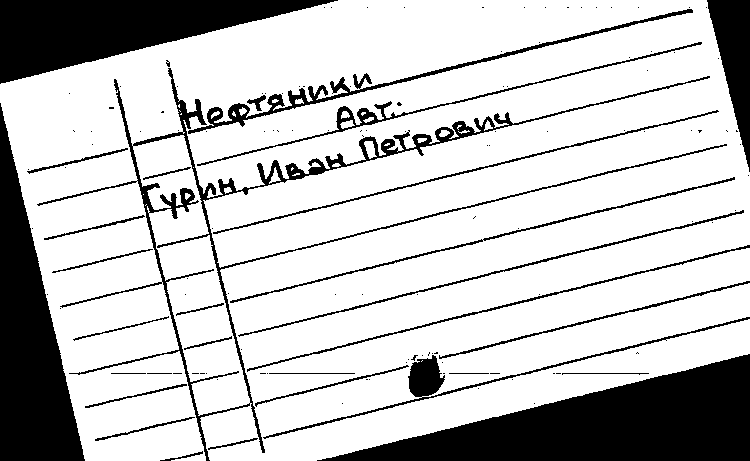 Нефтяники
Авт.:
Гурин, Иван Петрович